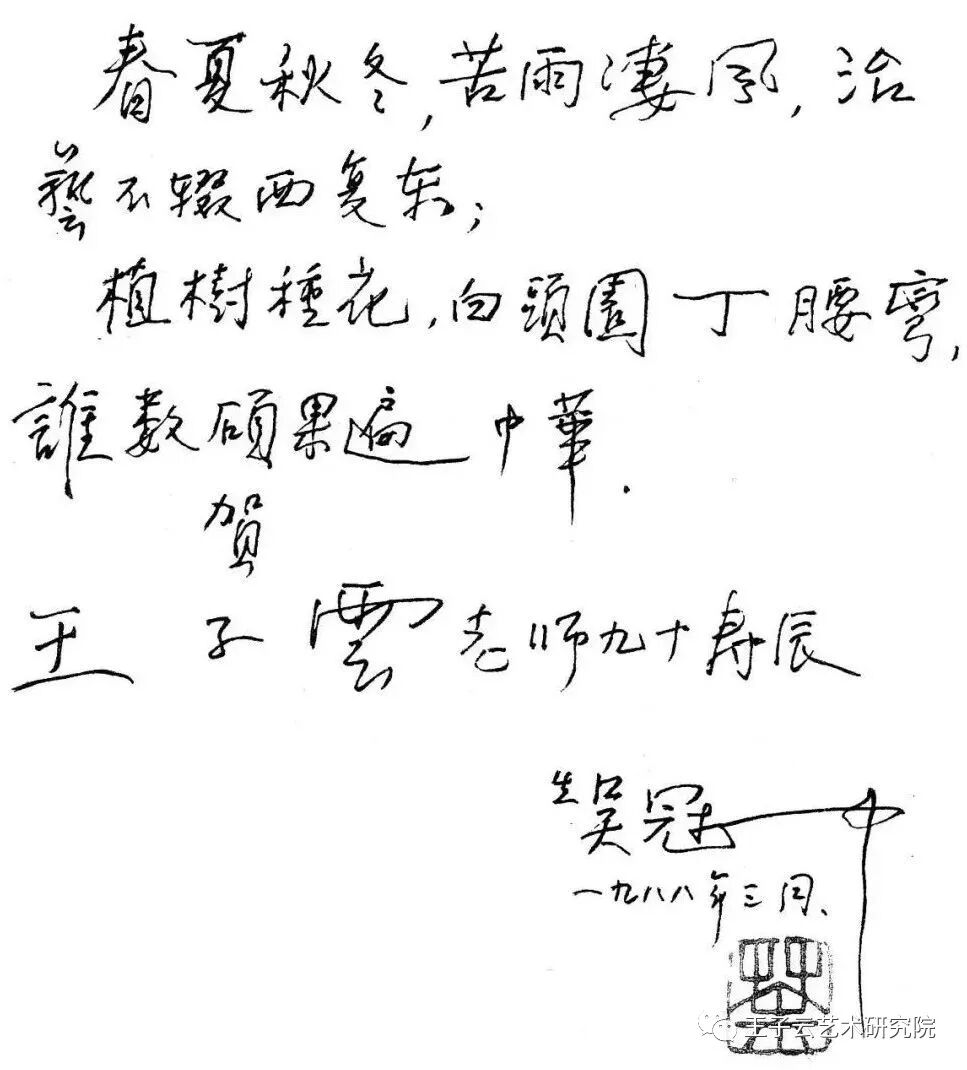 春夏秋冬,苦雨淒风,治
藝不辍西复东;
植樹種花,白頭園丁腰彎,
誰数碩果遍中華.
賀
王子雲老师九十寿辰
生吴冠中
一九八八年三月、
王子云艺术研究院